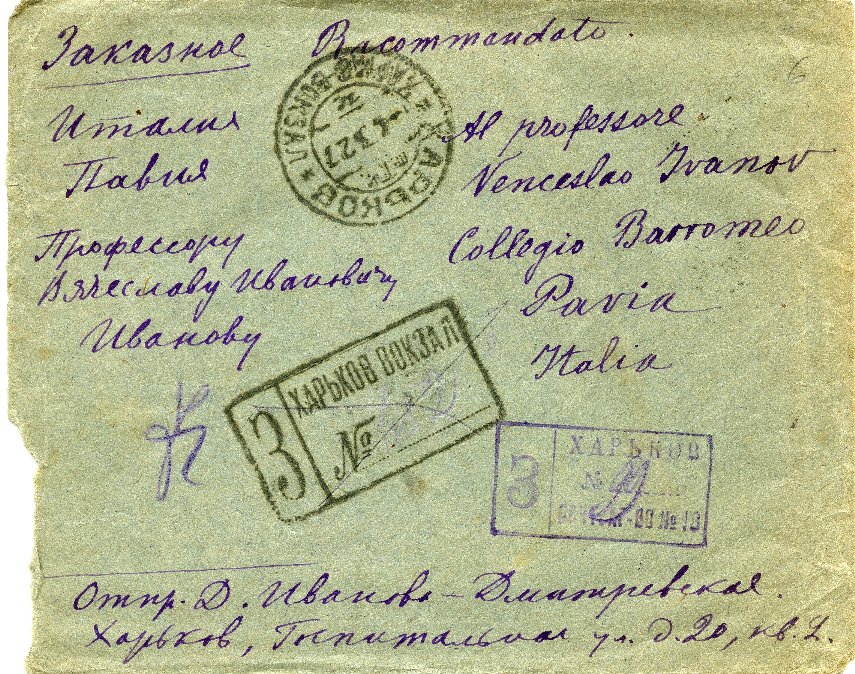 Заказное Racommandato.
6
Италия
Павия
Профессору
Вячеславу Ивановичу
Иванову
Al professore
Venceslao Ivanov
Collegio Barromeo
Pavia
Italia
ХАРЬКОВ
ВОКЗАЛ
27
З ХАРЬКОВ ВОКЗАЛ
№
З ХАРЬКОВ
№
№ 13
Отпр. Д. Иванова-Дмитревская.
Харьков, Госпитальная ул. д. 20, кв. 2.